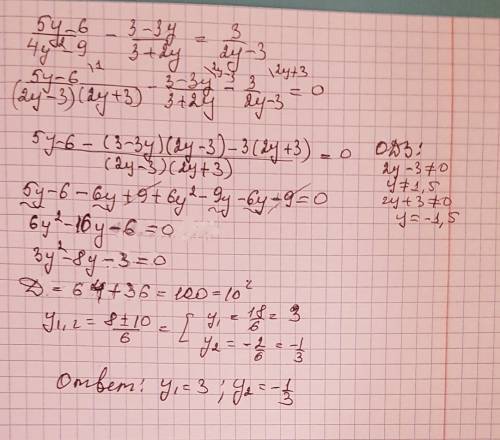 (5y-6)/(4y²-9) - (3-3y)/(3+2y) = 3/(2y-3)
(5y-6)/((2y-3)(2y+3)) \1 - (3-3y)/(3+2y) \2y-3 - 3/(2y-3) \2y+3 = 0
(5y-6-(3-3y)(2y-3)-3(2y+3))/((2y-3)(2y+3)) = 0
ОДЗ:
2y-3≠0
y≠1,5
2y+3≠0
y=-1,5
5y-6-6y+9+6y²-9y-6y-9=0
6y²-16y-6=0
3y²-8y-3=0
D=64+36=100=10²
y₁,₂=(8±10)/6=[ y₁=18/6=3
y₂=-2/6=-1/3
Ответ: y₁=3; y₂=-1/3